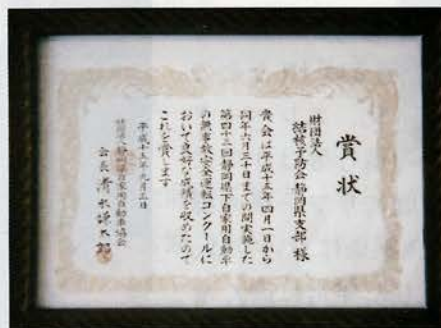 賞状
財団法人
結核予防会静岡県支部 様
貴会は平成十五年四月一日から
同年六月三十日までの間実施した
第四十二回静岡県下自家用自動車
の無事故安全運転コンクールに
おいて良好な成績を収めたので
これを賞します
平成十五年九月三日
静岡県自家用自動車協会
会長 清水謙太郎